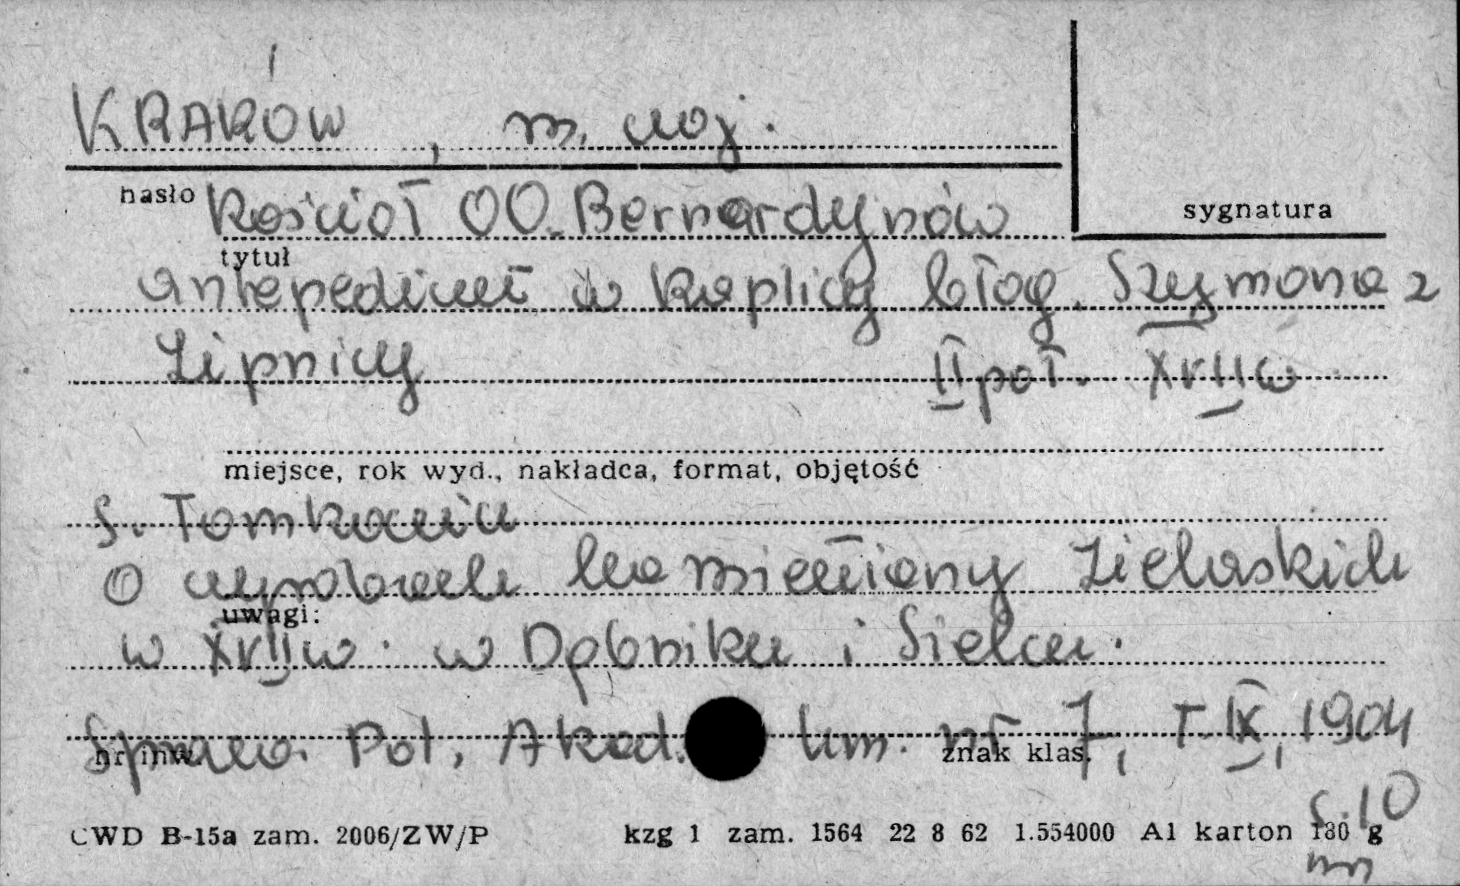 KRAKÓW, m. woj.
hasło
Kościół OO. Bernardynów
sygnatura
tytuł
antepedium w kaplicy błog. Szymona z
Lipnicy II poł. XVII w
miejsce, rok wyd., nakładca, format, objętość
S. Tomkowicz
O wyrobach kamieniarzy
w XVII w. w Dębniku i Sielcu.
uwagi:
Spraw. Pol. Akad. Um. nr 7, T. IX, 1904
nr inw. znak klas.
s. 10
CWD B-15a zam. 2006/ZW/P kzg 1 zam. 1564 22 8 62 1.554000 A1 karton 180 g